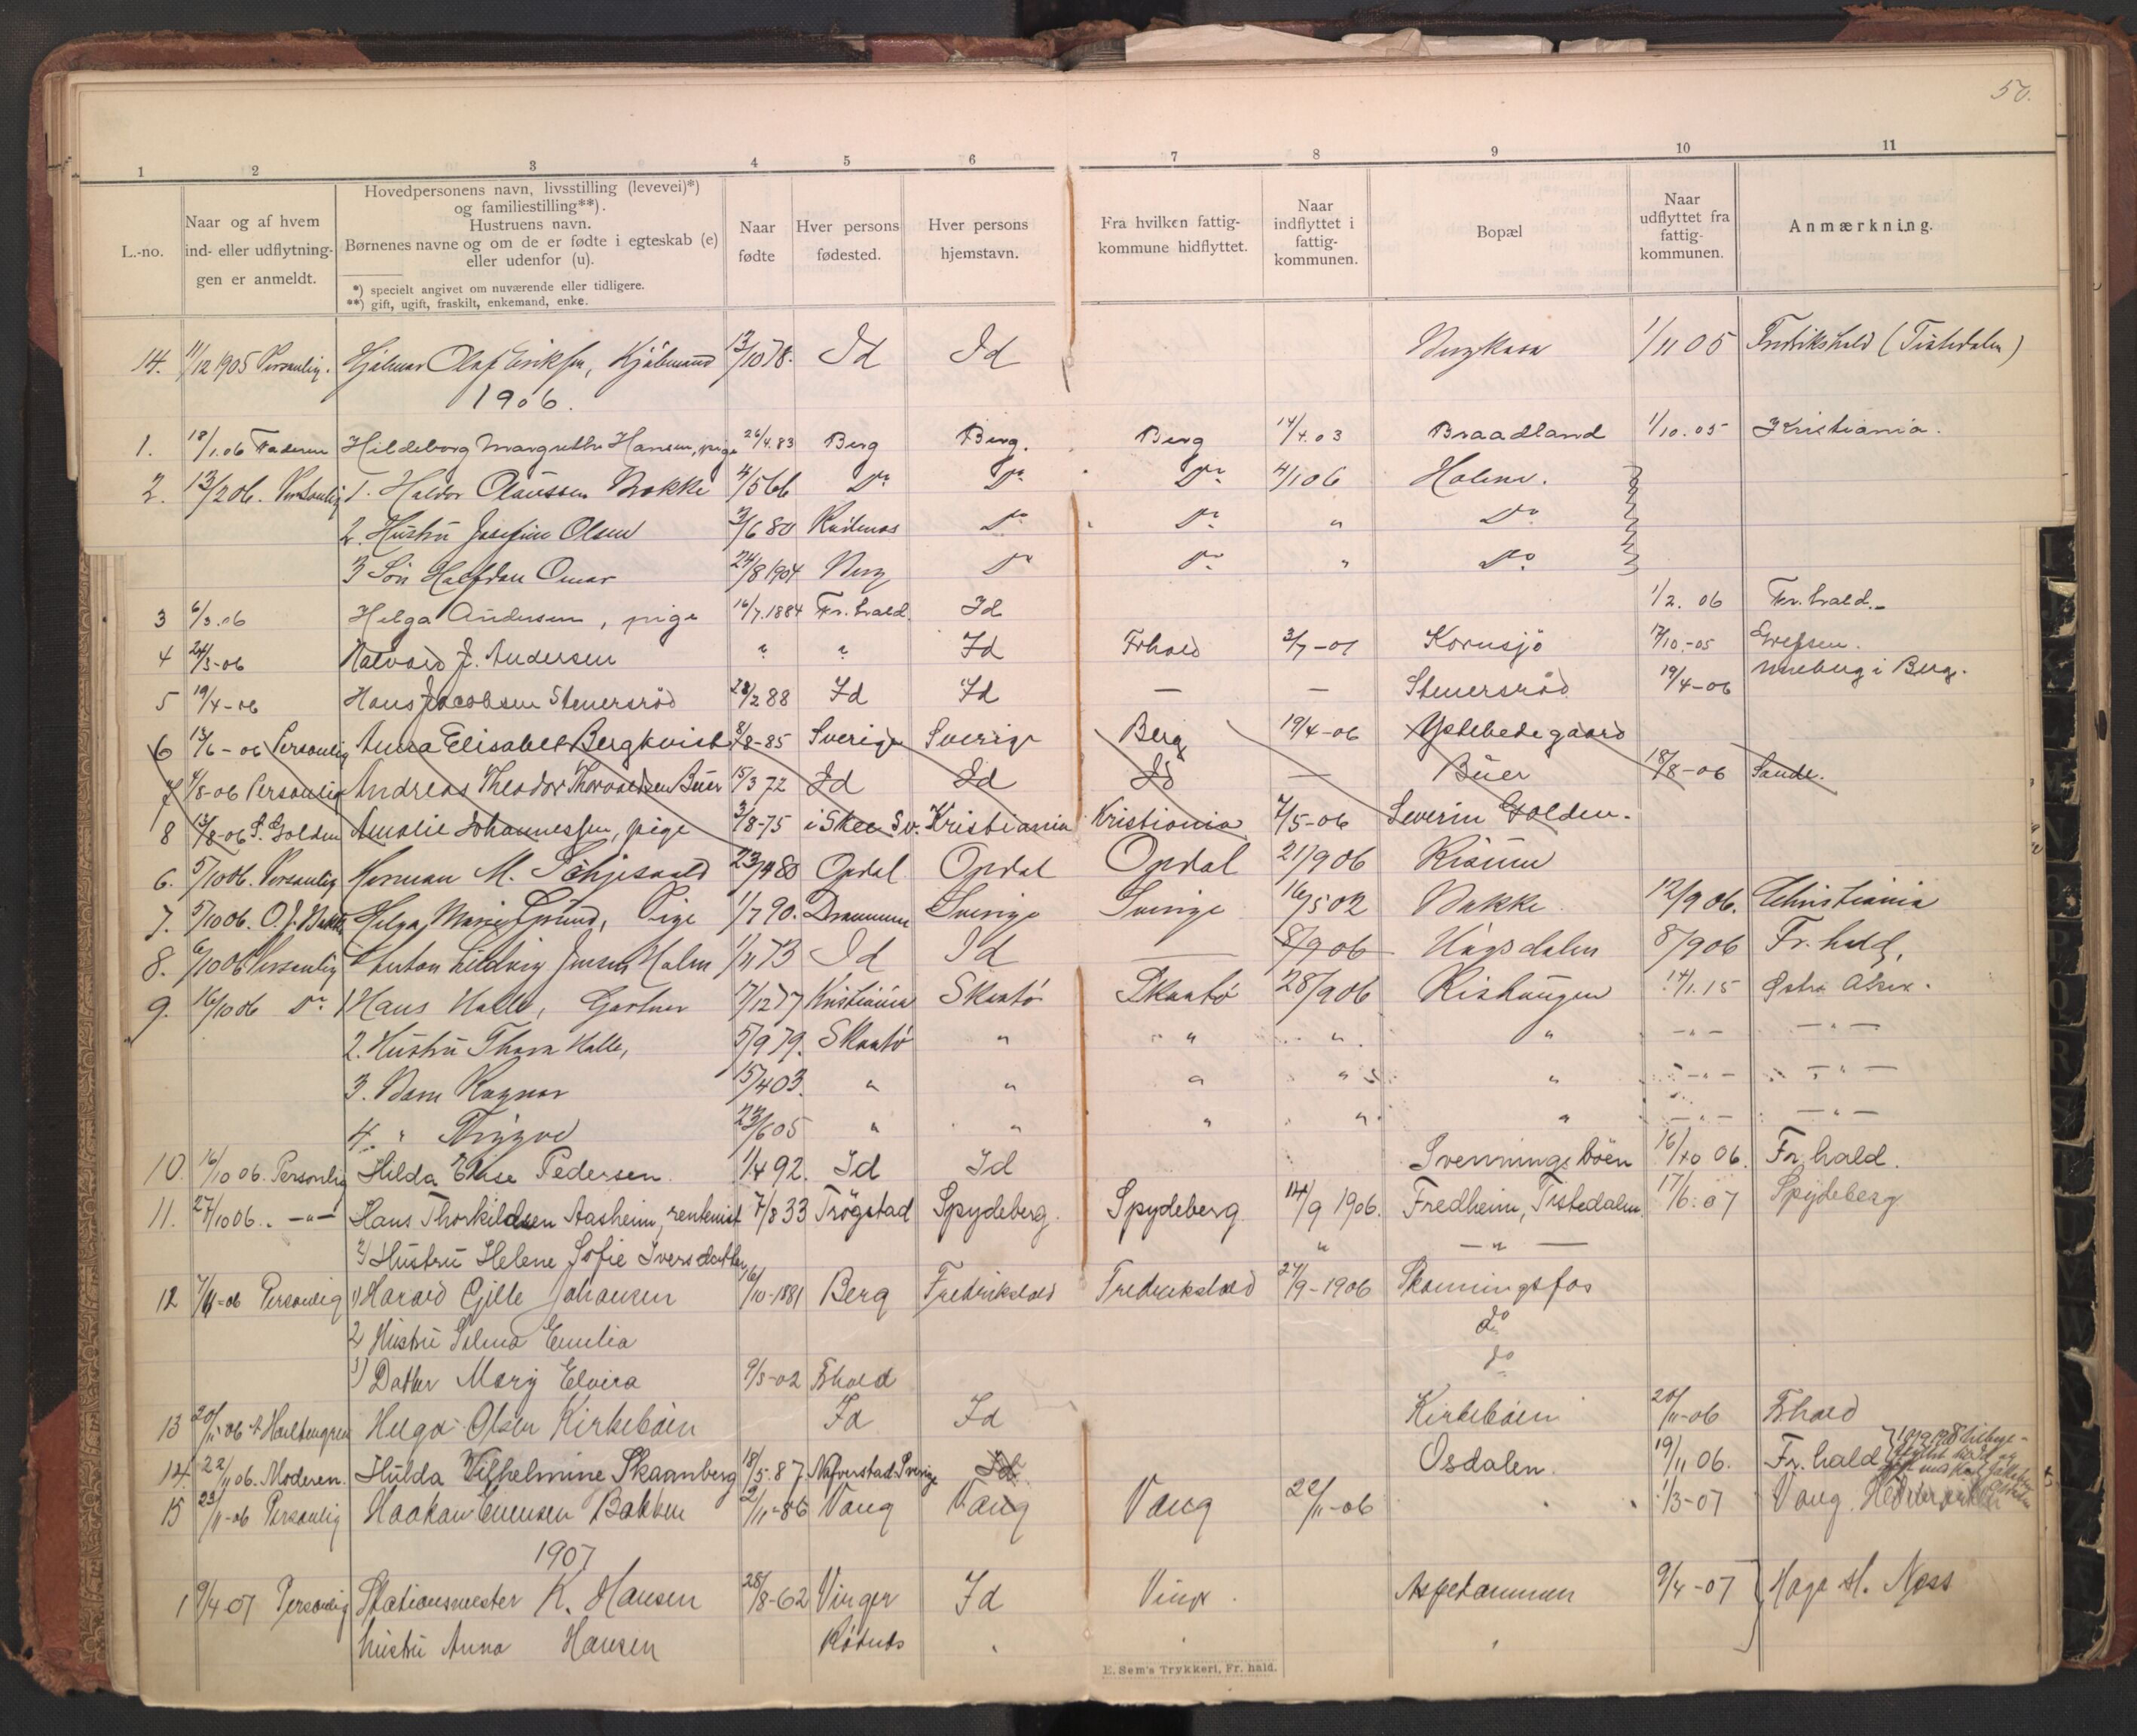 50.
1 2 3 4 5 6 7 8 9 10 11
L.-no.
Naar og af hvem
ind- eller udflytnin-
gen er anmeldt.
Hovedpersonens navn, livsstilling (levevei)*)
og familiestilling**).
Hustruens navn.
Børnenes navne og om de er fødte i egteskab (e)
eller udenfor (u).
*) specielt angivet om nuværende eller tidligere.
**) gift, ugift, fraskilt, enkemand, enke.
Naar
fødte
Hver persons
fødested.
Hver persons
hjemstavn.
Fra hvilken fattig-
kommune hidflyttet.
Naar
indflyttet i
fattig-
kommunen.
Bopæl
Naar
udflyttet fra
fattig-
kommunen.
Anmærkning.
14. 11/12 1905 Personlig. Hjalmar Olaf Eriksen, 13/10 78. Id Id 1/11 05 Fredrikshald (Tistedalen)
1906.
1. 18/1.06 Faderen Hildeborg Margrethe Hansen, pige 26/4.83 Berg Berg. Berg 14/4.03 Braadland 1/10.05 Kristiania.
2. 13/2 06. Personlig 1. Haldor Olaussen Bakke 4/5 66 Do Do Do 4/1 06 Holene.
2. Hustru Josefine Olsen 3/6 80 Do Do " Do
3 Søn Halfdan Omar 24/8 1904 Berg Do Do " Do
3 6/3.06 Helga Andersen, pige 16/7.1884 Fr.hald. Id 1/2. 06 Fr.hald.
4 24/3-06 Halvard J. Andersen ? ? Id Frhald 3/7-01 Kornsjø 17/10.-05 Grefsen.
5 19/4-06 Hans Jacobsen Stenersrød 28/2 88 Id Id — — Stenersrød 19/4-06 Uneberg i Berg.
6 13/6-06 Personlig Anna Elisabet Bergkvist 8/8-85 Sverige Sverige Berg 19/4-06 Ystebedegaard
7 9/8-06 Personlig Andreas Theodor Thorvaldsen Buer 15/3 72 Id Id Id — Buer 18/8-06 Sande.
8 13/8-06 S. Golden Amalie Johannessen, pige 3/8-75 i Skee Sv. Kristiania Kristiania 7/5-06 Severin Golden.
6. 5/10 06. Personlig Herman M. 23/4 80 Opdal Opdal Opdal 21/9 06
7. 5/10 06. O. J. Bakke Helga Marie Grund, Pige 1/7 90. Drammen Sverige Sverige 16/5 02 Bakke 12/9 06. Christiania
8. 6/10 06 Personlig Anton Ludvig Jensen Holm 1/11 73 Id Id — 8/9 06 8/9 06 Fr. hald,
9. 16/10 06 Do 1 Hans Halle, Gartner 17/12 77 Kristiania Skaatø Skaatø 28/9 06 Rishaugen 14/1.15 Østre Aker.
2. Hustru Thora Halle, 5/9 79. Skaatø " " " " -"- —"—
3. Barn Ragnar 15/4 03. " " " " " -"- —"—
4. " Tryggve 23/6 05 " " " " " —"— —"—
10. 16/10 06. Personlig Hilda Elise Pedersen. 1/4 92. Id Id Svenningsbøen 16/10 06. Fr.hald.
11. 27/10 06. —"— Hans Thorkildsen Aasheim, rentenist 7/8 33 Trøgstad Spydeberg. Spydeberg 14/9 1906. Fredheim, Tistedalen. 17/6.07 Spydeberg
2) Hustru Helene Sofie Iversdatter " —"—
12 7/11-06 Personlig 1) Harald Gille Johansen 16/10-1881 Berg Fredrikshald Fredrikshald 27/9-1906 Skonningsfos
2) Hustru Selma Emilia do
1) Datter Mary Elvira 9/3-02 Fhald do
13 20/11-06 Helga Olsen Kirkebøen Id Id Kirkebøen 20/11-06 Fhald
14. 22/11 06. Moderen. Hulda Vilhelmine Skaanberg 18/5-87 Nafverstad Sverige Id. Osdalen. 19/11 06. Fr. hald
15 23/11-06 Personlig Haakon Evensen Bakken 2/11-86 Vang Vang Vang 22/11-06 " 1/3-07 Vang. Hedemarken
1907
1 9/4-07 Personlig Stationsmester K. Hansen 28/8-62 Vinger Id Aspedammen 9/4-07 Haga st. Nes
hustru Anna Hansen "
E. Sem's Trykkeri, Fr. hald.